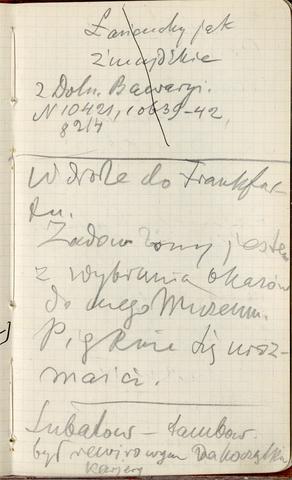 Łańcuchy jak
żmudzkie
z Doln. Bawaryi.
N 10421, 10639-42,
8214
W drodze do Frankfur-
tu.
Zadowolony jestem
z wybrania okazów
do mego Muzeum.
Pięknie się uroz-
maici.
Lubatow – tambow.
był rewirowym
karjery